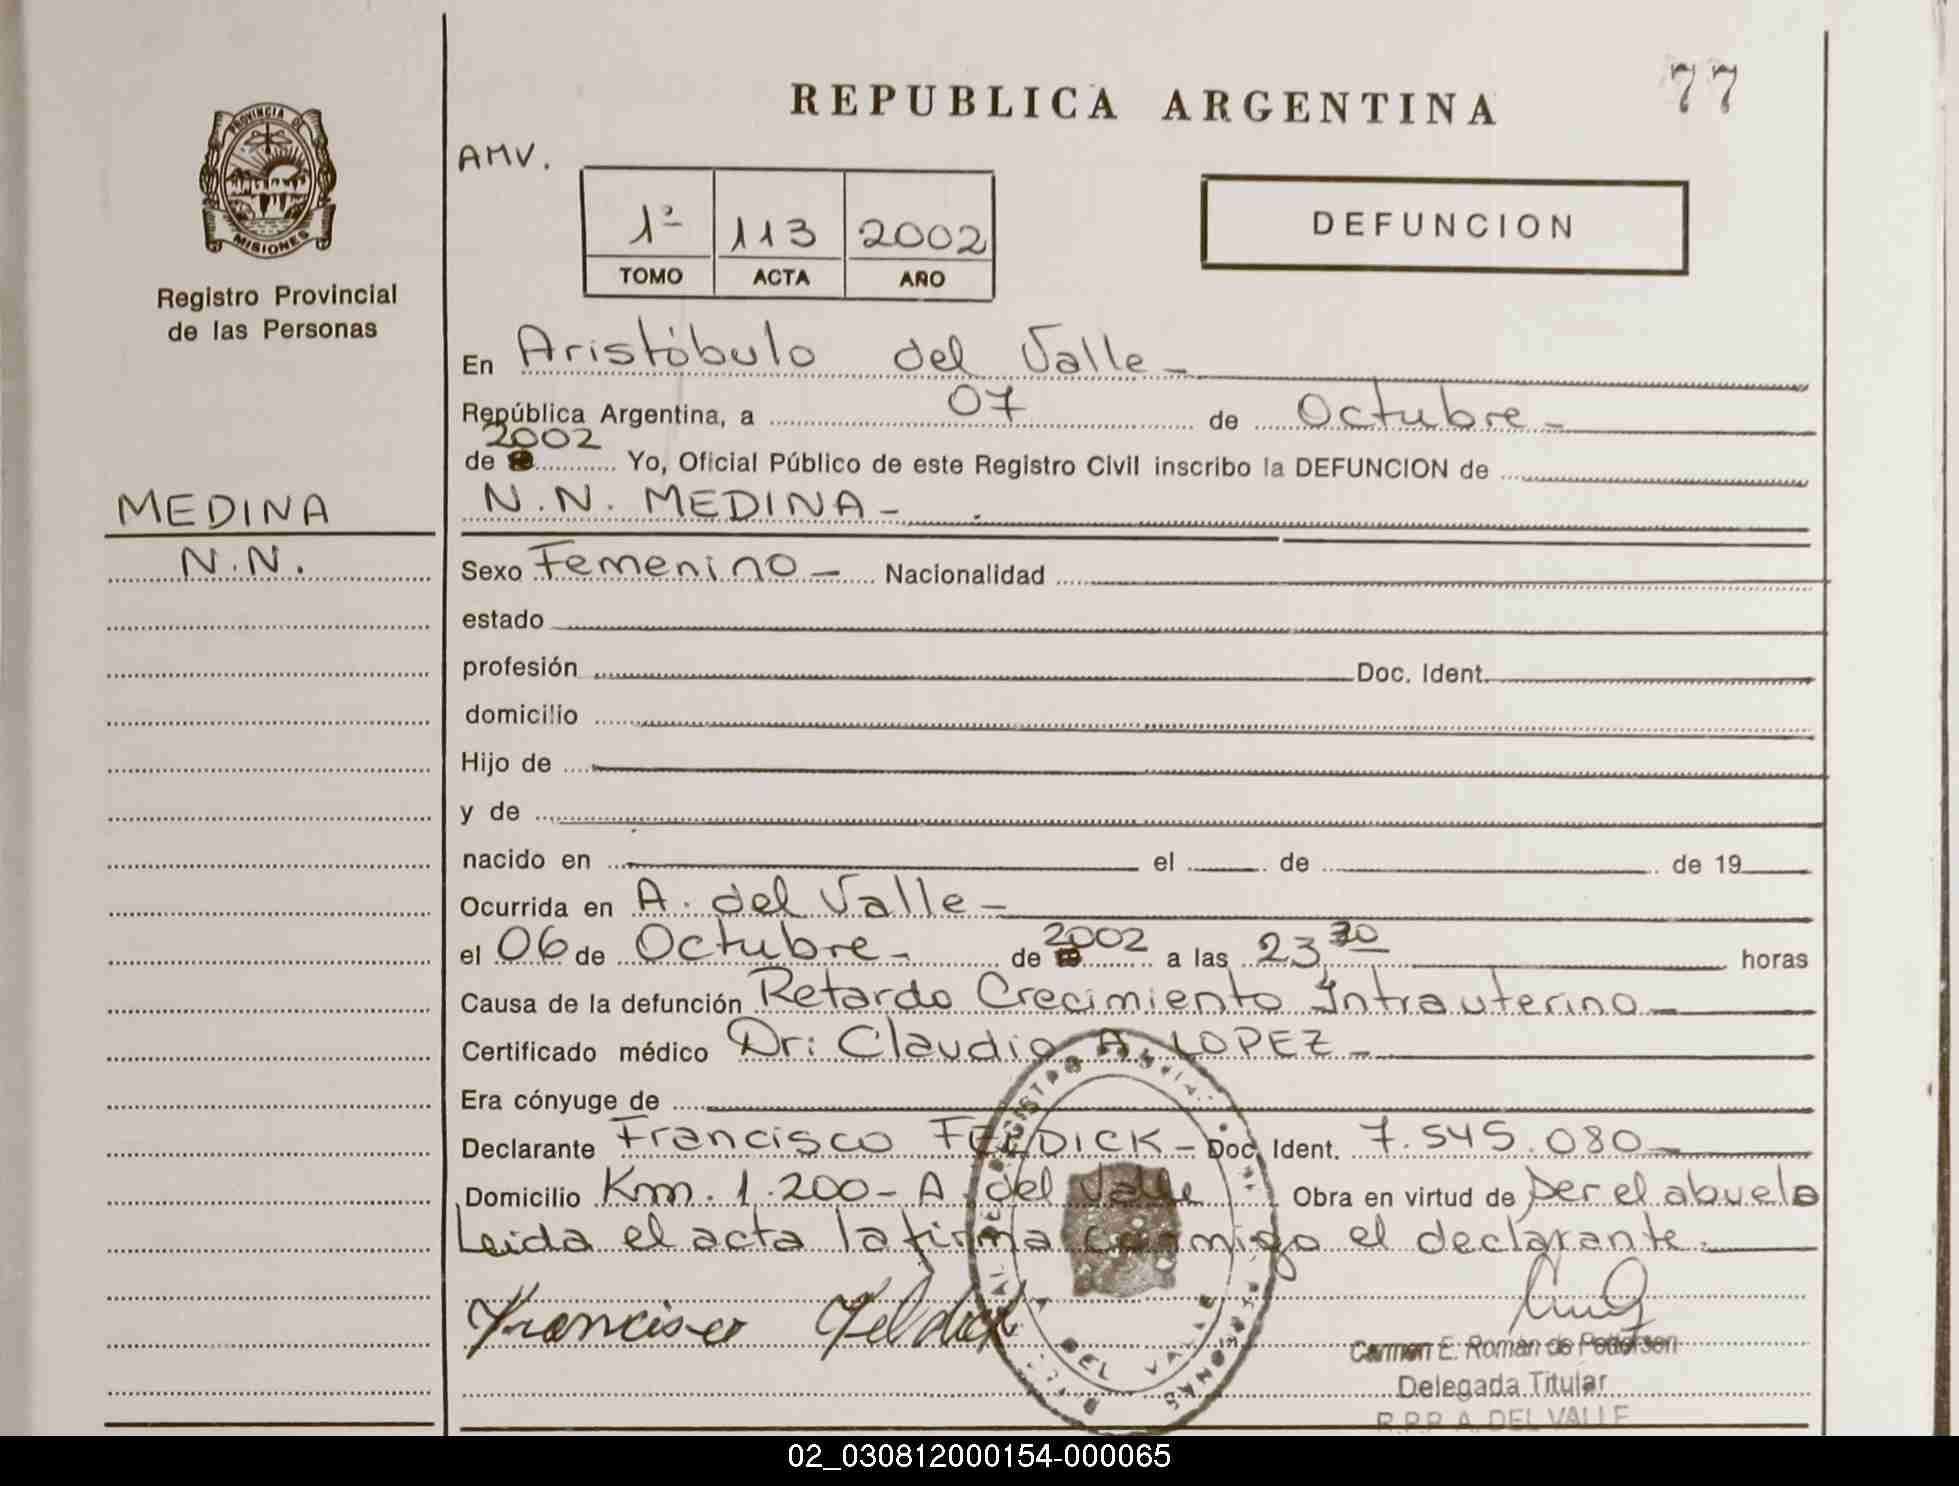 77
REPUBLICA ARGENTINA
PROVINCIA DE
MISIONES
Registro Provincial
de las Personas
AMV.
1º 113 2002
TOMO ACTA AÑO
DEFUNCION
En Aristóbulo del Valle
República Argentina, a 07 de Octubre
de 2002 Yo, Oficial Público de este Registro Civil inscribo la DEFUNCION de
MEDINA
N.N. MEDINA
N.N.
Sexo Femenino Nacionalidad
estado
profesión Doc. Ident.
domicilio
Hijo de
y de
nacido en el de de 19
Ocurrida en A. del Valle
el 06 de Octubre de 2002 a las 23 horas
Causa de la defunción Retardo Crecimiento Intrauterino
Certificado médico Dr: Claudio A. LOPEZ
Era cónyuge de
Declarante Francisco FELDICK Doc. Ident. 7.545.080
Domicilio Km. 1.200 - A. del Valle Obra en virtud de ser el abuelo
Leida el acta la firma conmigo el declarante.
Francisco Feldick
Carmen E. Román de
Delegada Titular
R.P.P. A. DEL VALLE
DEL VALLE
02_030812000154-000065